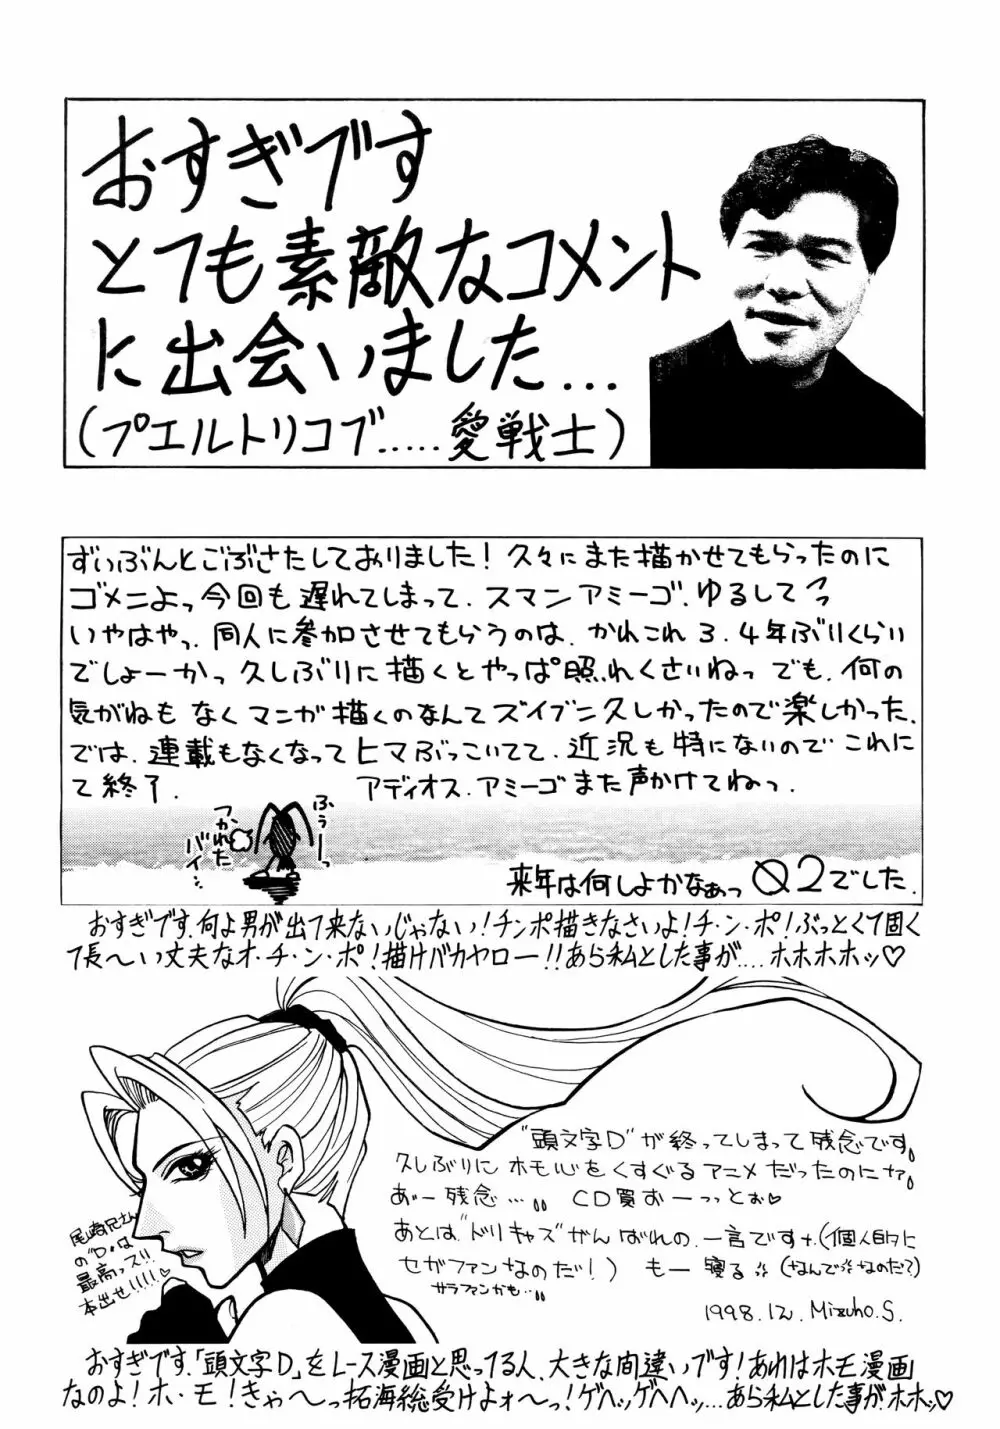 おすぎです
とても素敵なコメント
に出会いました...
(プエルトリコブ.....愛戦士)
ずいぶんとごぶさたしておりました！久々にまた描かせてもらったのに
ゴメニよっ今回も遅れてしまって、スマンアミーゴ、ゆるしてっ
いやはやっ、同人に参加させてもらうのは、かれこれ3、4年ぶりくらい
でしょーかっ久しぶりに描くとやっぱ照れくさいねっでも、何の
気がねもなくマンガ描くのなんてズイブン久しかったので楽しかった、
では、連載もなくなってヒマぶっこいてて、近況も特にないのでこれに
て終了.
アディオス、アミーゴまた声かけてねっ.
ふぅーっ
つかれた
バイ...
来年は何しよかなぁっ Ø2でした.
おすぎです、何よ男が出て来ないじゃない！チンポ描きなさいよ！チ・ン・ポ！ぶっとくて固く
て長〜い丈夫なオ・チ・ン・ポ！描けバカヤロー！！あら私とした事が....ホホホホッ♡
"頭文字D"が終ってしまって残念です。
久しぶりにホモ心をくすぐるアニメだったのにナァ。
あー残念...。。CD買おーっっとぉ♡
あとは、"ドリキャス"がんばれの、一言ですナ、(個人的に
セガファンなのだ！) もー寝るツツ(なんでツツなのだ?)
サラファンかも...。。
1998.12. Mizuho.S.
尾崎兄さん
の"D"は
最高っス!!
本出せ!!!!♡
おすぎです、「頭文字D」をレース漫画と思ってる人、大きな間違いです！あれはホモ漫画
なのよ！ホ・モ！きゃ〜っ拓海総受けよォ〜っ！ゲヘッゲヘヘッ...あら私とした事がホホッ♡